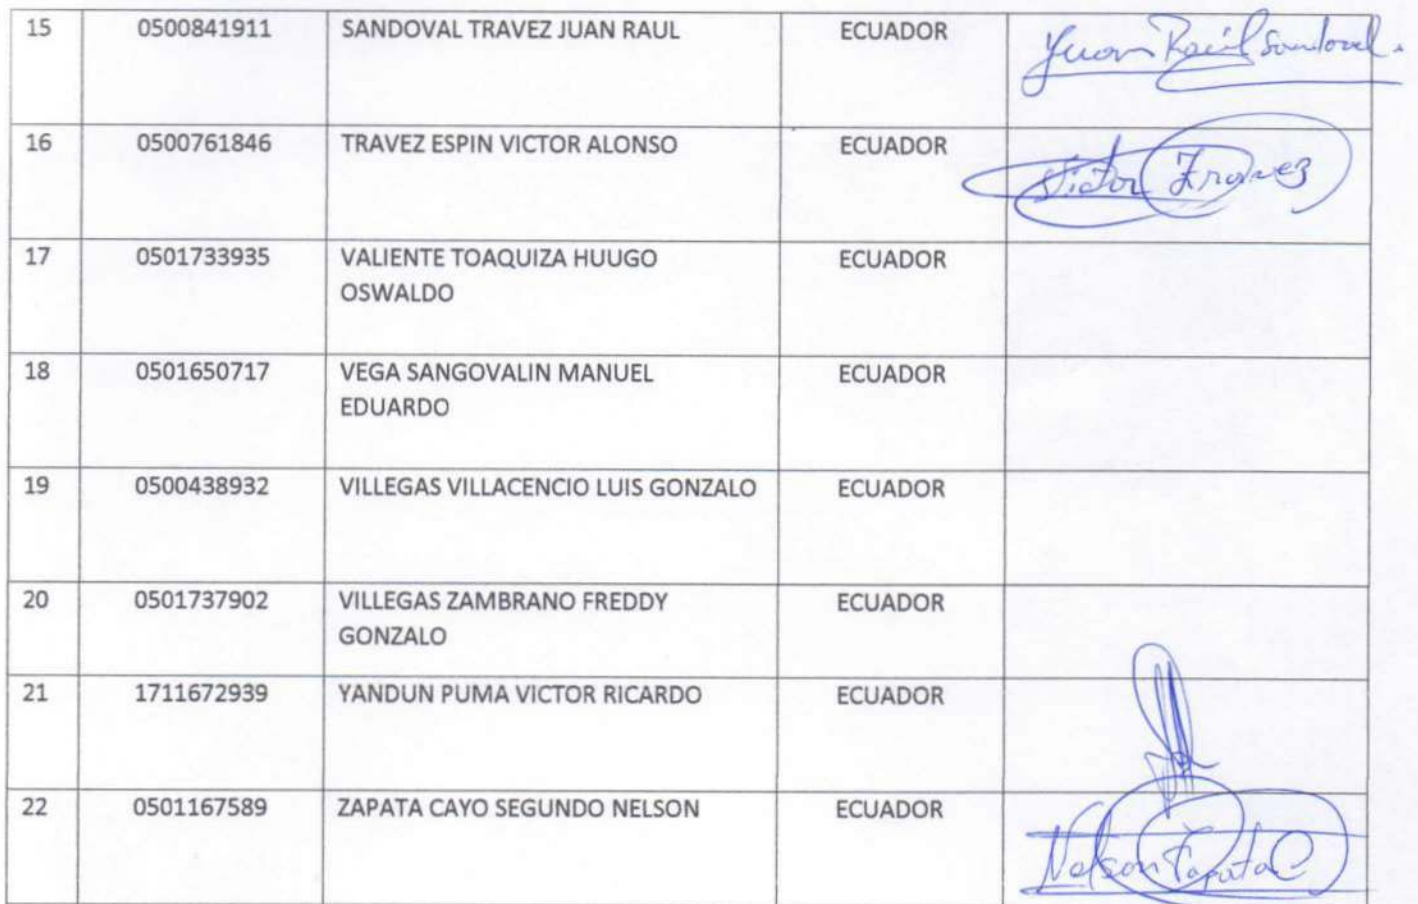 15 0500841911 SANDOVAL TRAVEZ JUAN RAUL ECUADOR Juan Raúl Sandoval.
16 0500761846 TRAVEZ ESPIN VICTOR ALONSO ECUADOR Victor Travez
17 0501733935 VALIENTE TOAQUIZA HUUGO ECUADOR
OSWALDO
18 0501650717 VEGA SANGOVALIN MANUEL ECUADOR
EDUARDO
19 0500438932 VILLEGAS VILLACENCIO LUIS GONZALO ECUADOR
20 0501737902 VILLEGAS ZAMBRANO FREDDY ECUADOR
GONZALO
21 1711672939 YANDUN PUMA VICTOR RICARDO ECUADOR
22 0501167589 ZAPATA CAYO SEGUNDO NELSON ECUADOR
Nelson Zapata C